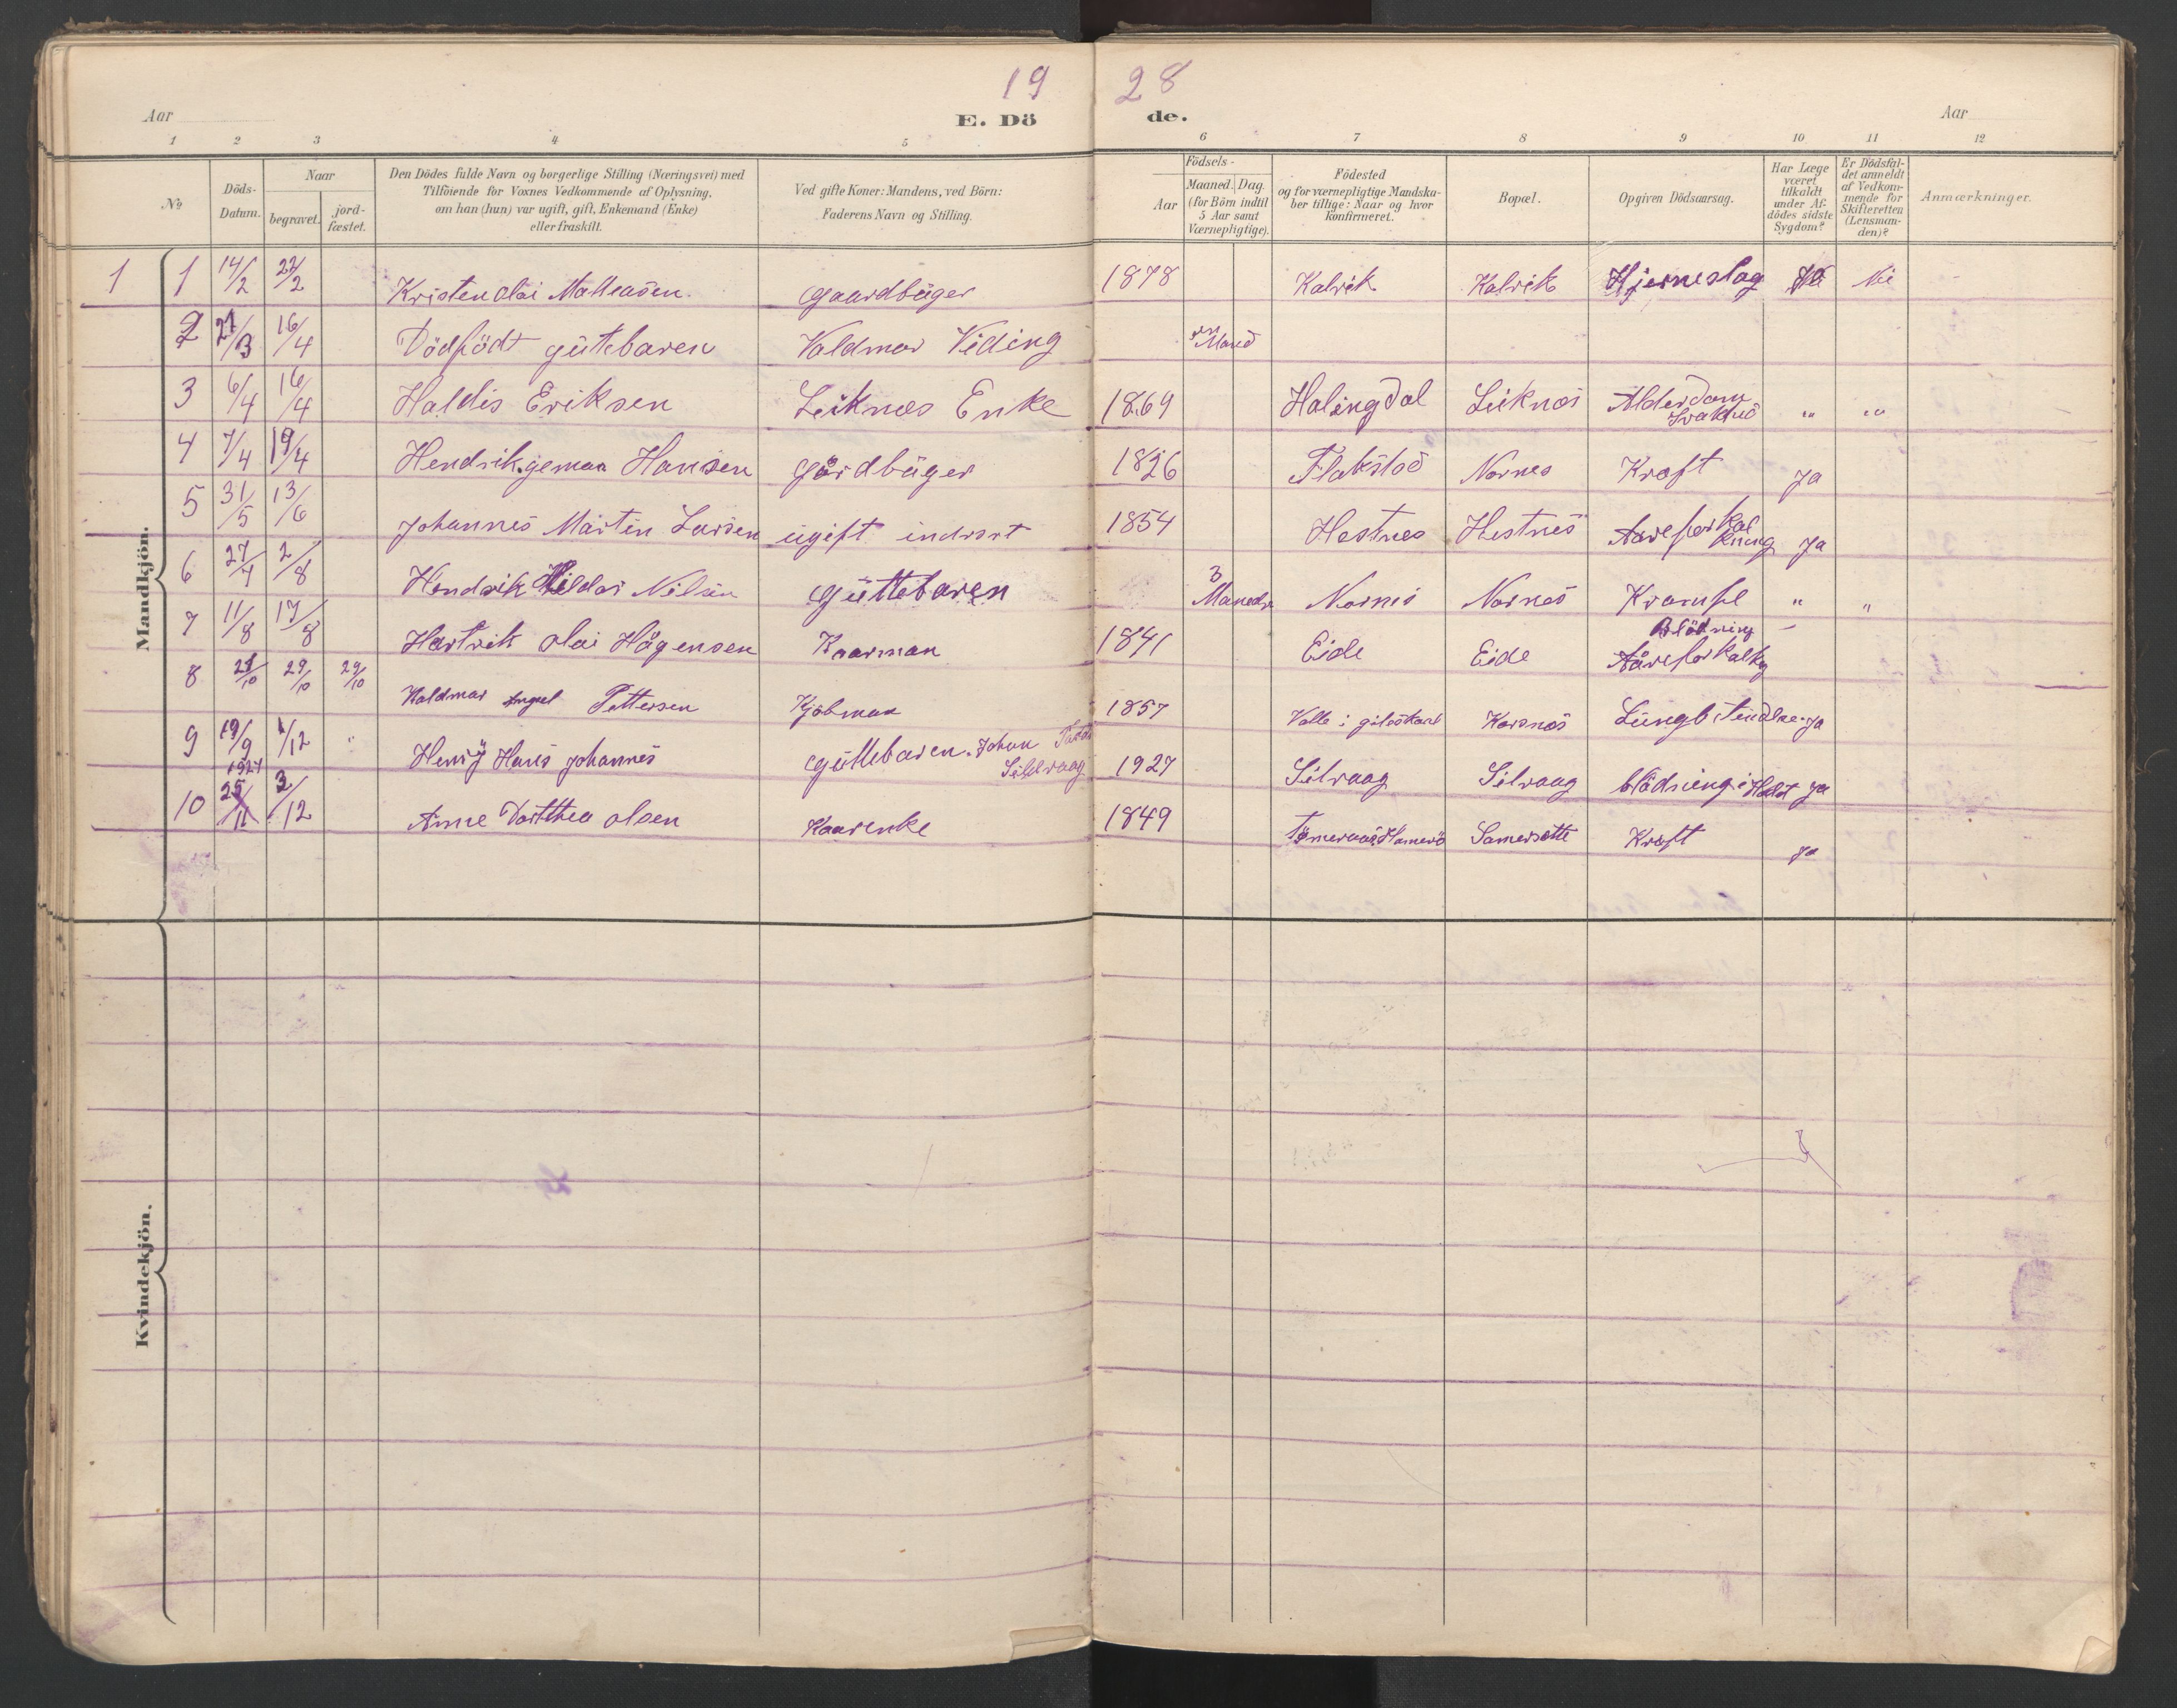 19 28
Aar E. Dö de. Aar
1 2 3 4 5 6 7 8 9 10 11 12
No
Döds-Datum.
Naar
begravet.
jord-fæstet.
Den Dödes fulde Navn og borgerlige Stilling (Næringsvei) med
Tilföiende for Voxnes Vedkommende af Oplysning,
om han (hun) var ugift, gift, Enkemand (Enke)
eller fraskilt.
Ved gifte Koner: Mandens, ved Börn:
Faderens Navn og Stilling.
Födsels-
Aar
Maaned. Dag.
(for Börn indtil
5 Aar samt
Værnepligtige).
Födested
og for værnepligtige Mandska-
ber tillige: Naar og hvor
Konfirmeret.
Bopæl.
Opgiven Dödsaarsag.
Har Læge
været
tilkaldt
under Af-
dödes sidste
Sygdom?
Er Dödsfal-
det anmeldt
af Vedkom-
mende for
Skifteretten
(Lensman-
den)?
Anmærkninger.
Mandkjön.
1 1 14/2 22/2 Kristen olai Matheasen gaardbüger 1878 Kalvik Kalvik Hjerneslag Ja Nei
2 21/3 16/4 Dödfödt gütebaren Valdmar Viding
3 6/4 16/4 Haldis Eriksen Leiknes Enke 1869 Halingdal Leiknes Alderdom „ „
4 7/4 19/4 Hendrik Hansen gårdbüger 1826 Flakstad Nornes Kræft Ja
5 31/5 13/6 Johannes Martin Larsen ügift 1854 Hestnes Hestnes Aareforkalkning Ja
6 27/4 2/8 Hendrik Nilsen güttebaren 3 Maneder Nornes Nornes Krampe „ „
7 11/8 17/8 Hartvik olai Hågensen Kaarman 1841 Eide Eide Blödning
Åreforkalkng
8 21/10 29/10 29/10 Valdmar Pettersen Kjöbman 1857 Valle i gileskaal Korsnes Lüngbetendlse Ja
9 19/9 1/12 „ Henrÿ Hans Johannes güttebaren. Johan
Sildvaag 1927 Silvaag Silvaag blödning i Ja
10 25/11 3/12 Anne Dortthea olsen Kaarenke 1849 Tömeraas Hamerö Somersette Kræft Ja
Kvindekjön.